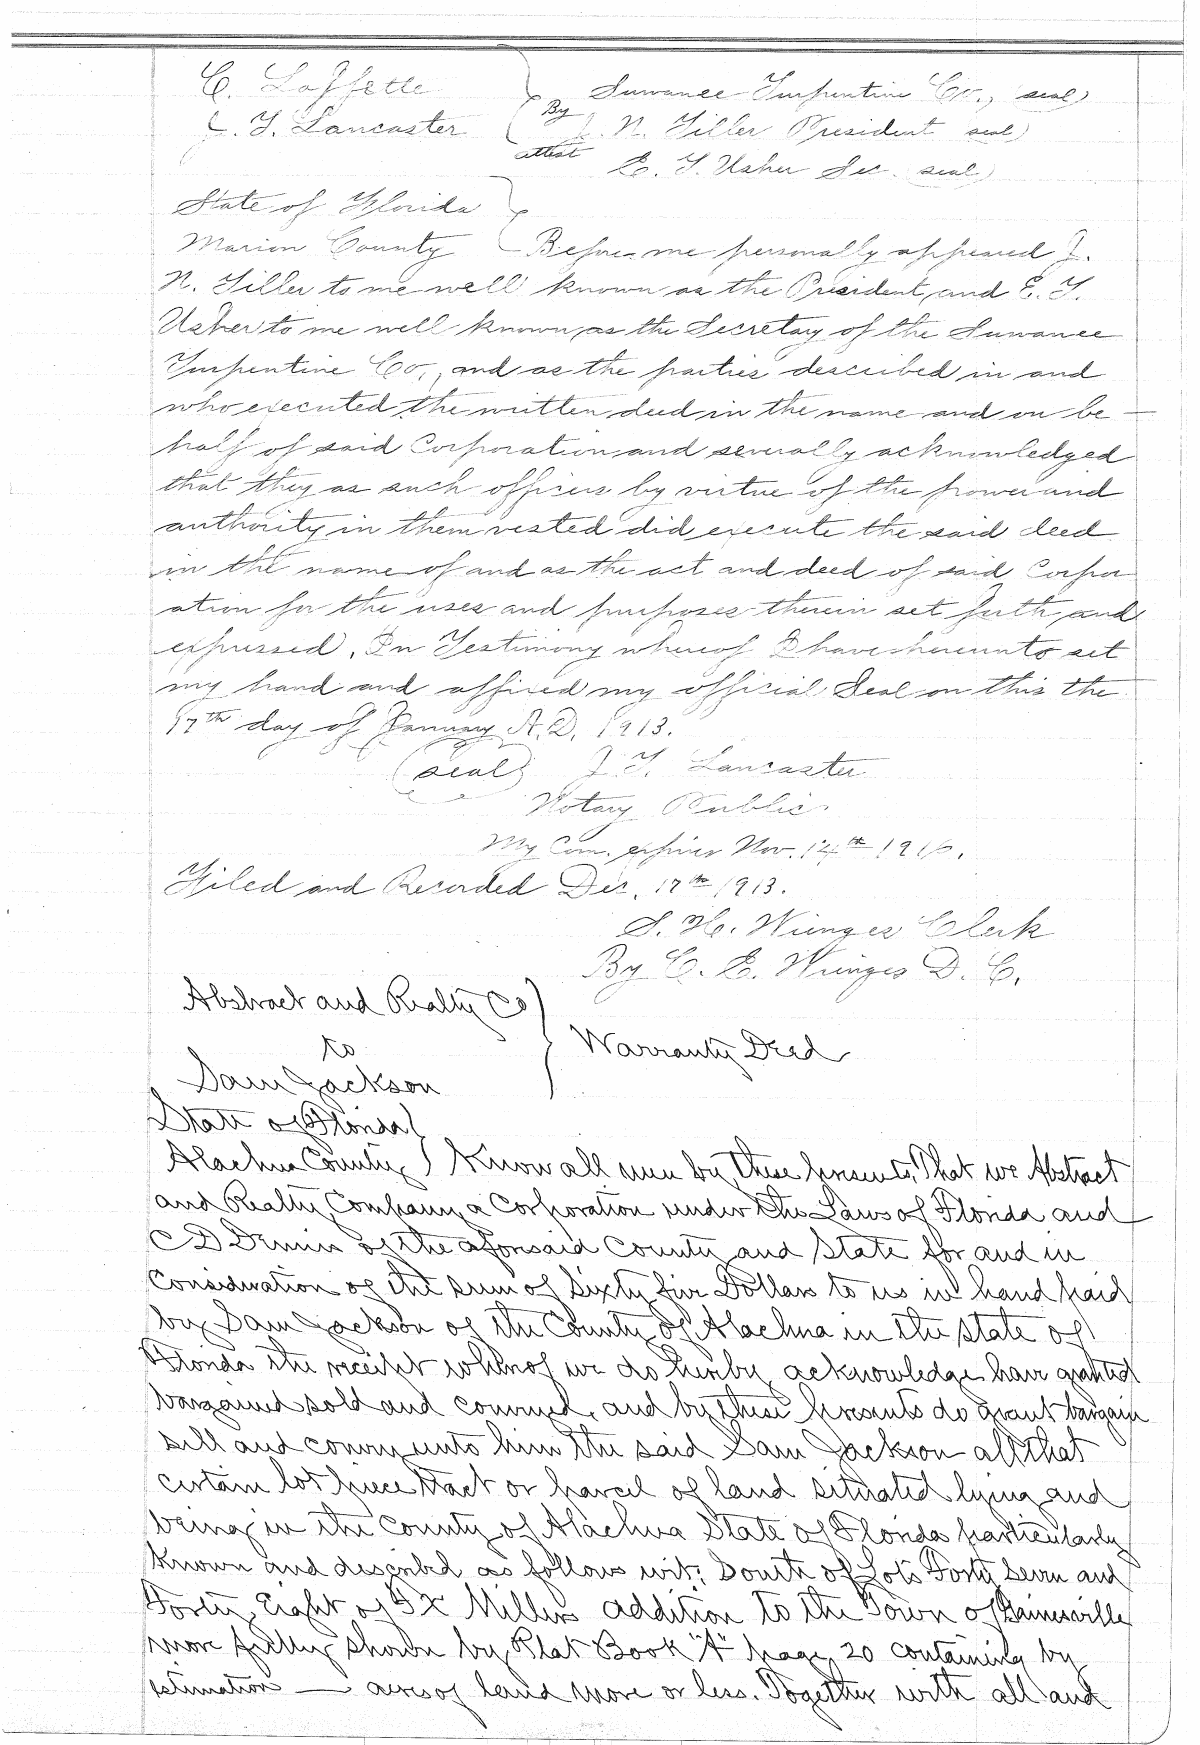 C. Laffette Suwanee Turpentine Co., (seal)
J. T. Lancaster By J. N. Tiller President seal)
attest E. T. Usher Sec. seal)
State of Florida
Marion County Before me personally appeared J.
N. Tiller to me well known as the President, and E. T.
Usher to me well known, as the Secretary of the Suwanee
Turpentine Co., and as the parties described in and
who executed the written deed in the name and on be-
half of said Corporation and severally acknowledged
that they as such officers by virtue of the power and
authority in them vested did execute the said deed
in the name of and as the act and deed of said Corpor
ation for the uses and purposes therein set forth and
expressed. In Testimony whereof I have hereunto set
my hand and affixed my official Seal on this the
17th day of January A.D. 1913.
(seal) J. T. Lancaster
Notary Public.
My Com. expires Nov. 14th 1916.
Filed and Recorded Dec. 17th 1913.
S. H. Wienges Clerk
By C. E. Wienges D. C.
Abstract and Realty Co
to Warranty Deed
Sam Jackson
State of Florida
Alachua County Know all men by these presents, That we Abstract
and Realty Company a Corporation under the Laws of Florida and
C D of the aforesaid County and State for and in
Consideration of the sum of Sixty five Dollars to us in hand paid
by Sam Jackson of the County of Alachua in the state of
Florida the receipt whereof we do hereby acknowledge have granted
bargained sold and conveyed, and by these presents do grant bargain
sell and convey unto him the said Sam Jackson all that
certain lot piece tract or parcel of land situated lying and
being in the County of Alachua State of Florida particularly
Known and described as follows wit: South of Lots Forty Seven and
Forty Eight of Millers addition to the Town of Gainesville
more fully shown by Plat Book "A" page 20 containing by
estimation — acres of land more or less. Together with all and